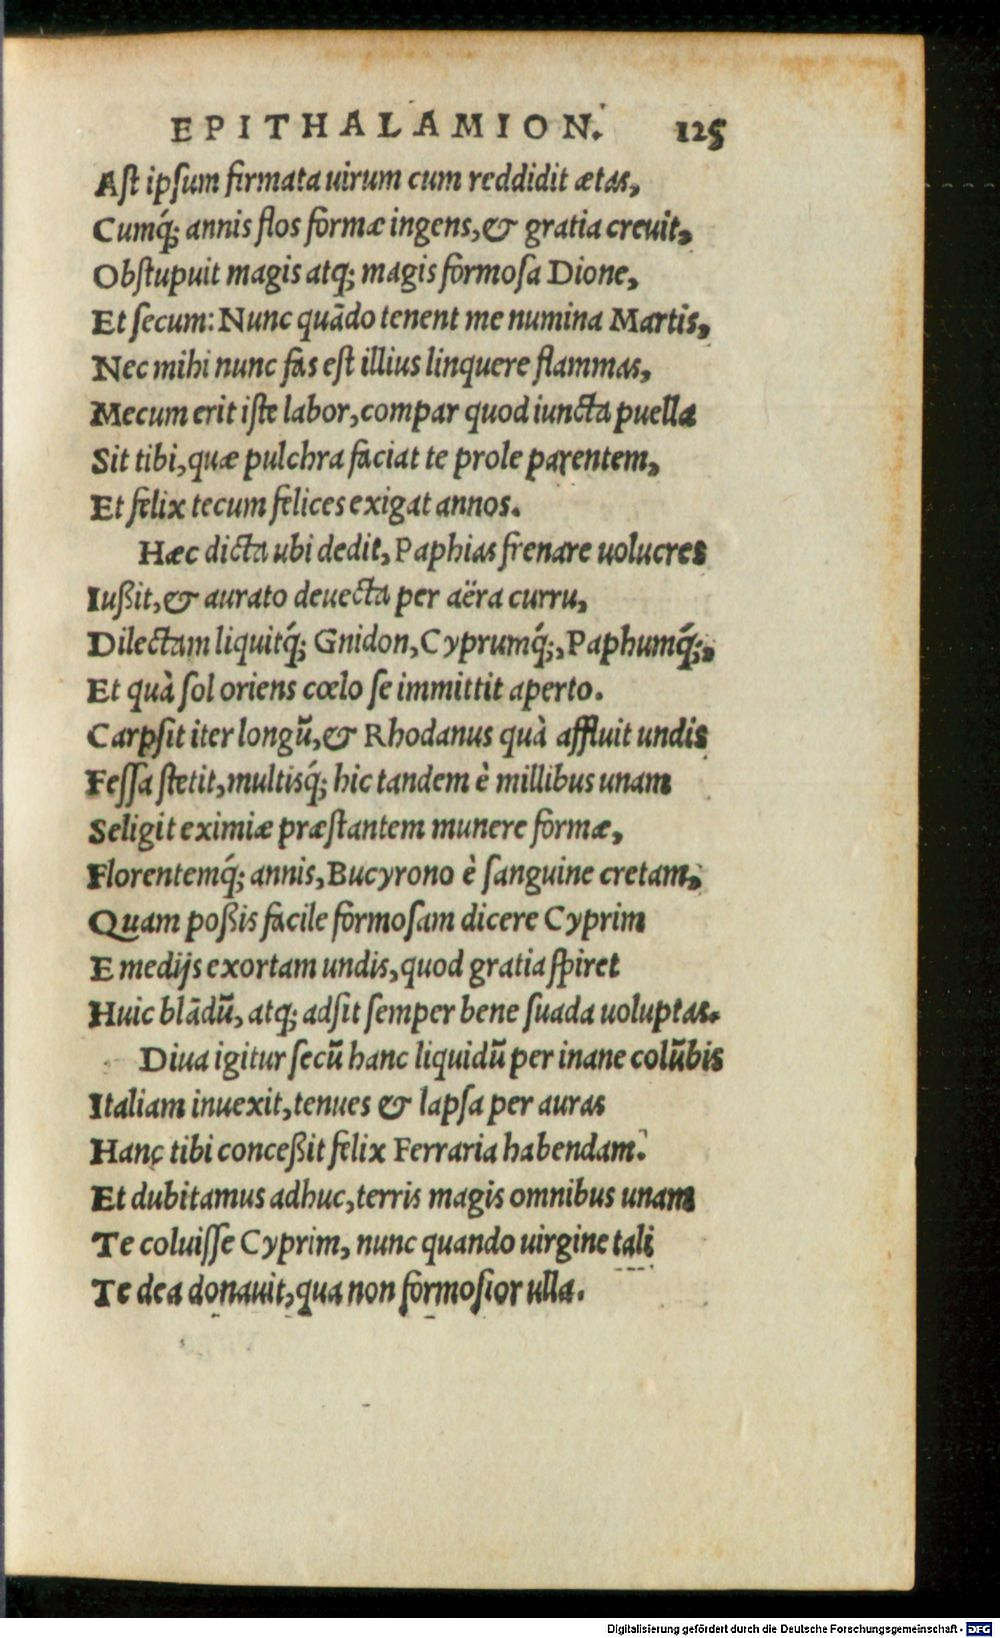 EPITHALAMION. 125
Aſt ipſum firmata uirum cum reddidit ætas,
Cumq́; annis flos formæ ingens, & gratia creuit,
Obſtupuit magis atq; magis formoſa Dione,
Et ſecum: Nunc quādo tenent me numina Martis,
Nec mihi nunc fas eſt illius linquere flammas,
Mecum erit iſte labor, compar quod iuncta puella
Sit tibi, quæ pulchra faciat te prole parentem,
Et felix tecum felices exigat annos.
Hæc dicta ubi dedit, Paphias frenare uolucres
Iußit, & aurato deuecta per aëra curru,
Dilectam liquitq́; Gnidon, Cyprumq́;, Paphumq́;,
Et quà ſol oriens cœlo ſe immittit aperto.
Carpſit iter longū, & Rhodanus quà affluit undis
Feſſa ſtetit, multisq́; hic tandem è millibus unam
Seligit eximiæ præſtantem munere formæ,
Florentemq́; annis, Bucyrono è ſanguine cretam,
Quam poßis facile formoſam dicere Cyprim
E medijs exortam undis, quod gratia ſpiret
Huic blādū, atq; adſit ſemper bene ſuada uoluptas.
Diua igitur ſecū hanc liquidū per inane colūbis
Italiam inuexit, tenues & lapſa per auras
Hanc tibi conceßit felix Ferraria habendam.
Et dubitamus adhuc, terris magis omnibus unam
Te coluiſſe Cyprim, nunc quando uirgine tali
Te dea donauit, qua non formoſior ulla.
Digitalisierung gefördert durch die Deutsche Forschungsgemeinschaft - DFG